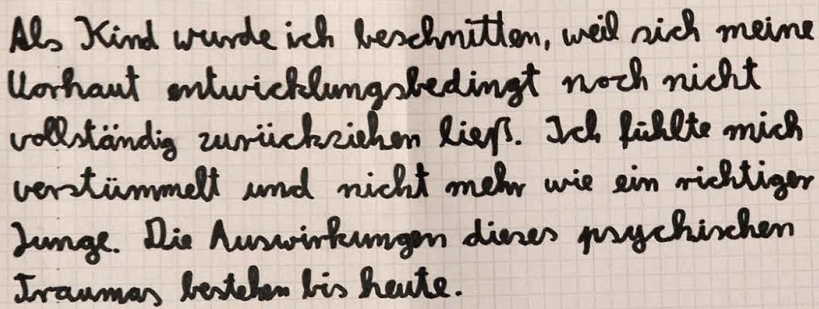 Als Kind wurde ich beschnitten, weil sich meine
Vorhaut entwicklungsbedingt noch nicht
vollständig zurückziehen ließ. Ich fühlte mich
verstümmelt und nicht mehr wie ein richtiger
Junge. Die Auswirkungen dieses psychischen
Traumas bestehen bis heute.